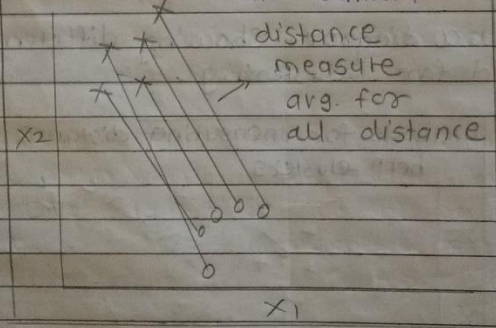 distance
measure
avg. for
all distance
X2
X1